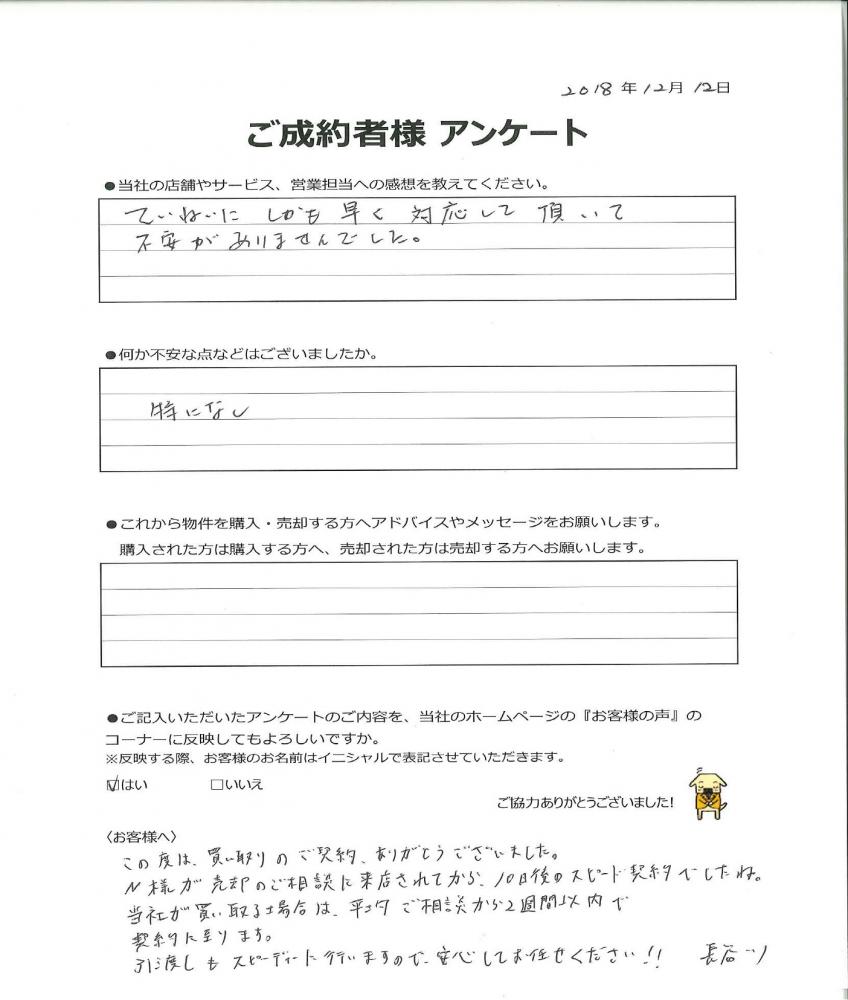 2018年12月12日
ご成約者様 アンケート
●当社の店舗やサービス、営業担当への感想を教えてください。
ていねいに しかも 早く 対応して 頂いて
不安が ありませんでした。
●何か不安な点などはございましたか。
特になし
●これから物件を購入・売却する方へアドバイスやメッセージをお願いします。
購入された方は購入する方へ、売却された方は売却する方へお願いします。
●ご記入いただいたアンケートのご内容を、当社のホームページの『お客様の声』の
コーナーに反映してもよろしいですか。
※反映する際、お客様のお名前はイニシャルで表記させていただきます。
☑はい □いいえ
ご協力ありがとうございました!
〈お客様へ〉
この度は、買い取りのご契約、ありがとうございました。
N様が売却のご相談に来店されてから、10日後のスピード契約でしたね。
当社が買い取る場合は、平均ご相談から2週間以内で
契約に至ります。
引き渡しもスピーディーに行いますので、安心してお任せください!! 長谷川